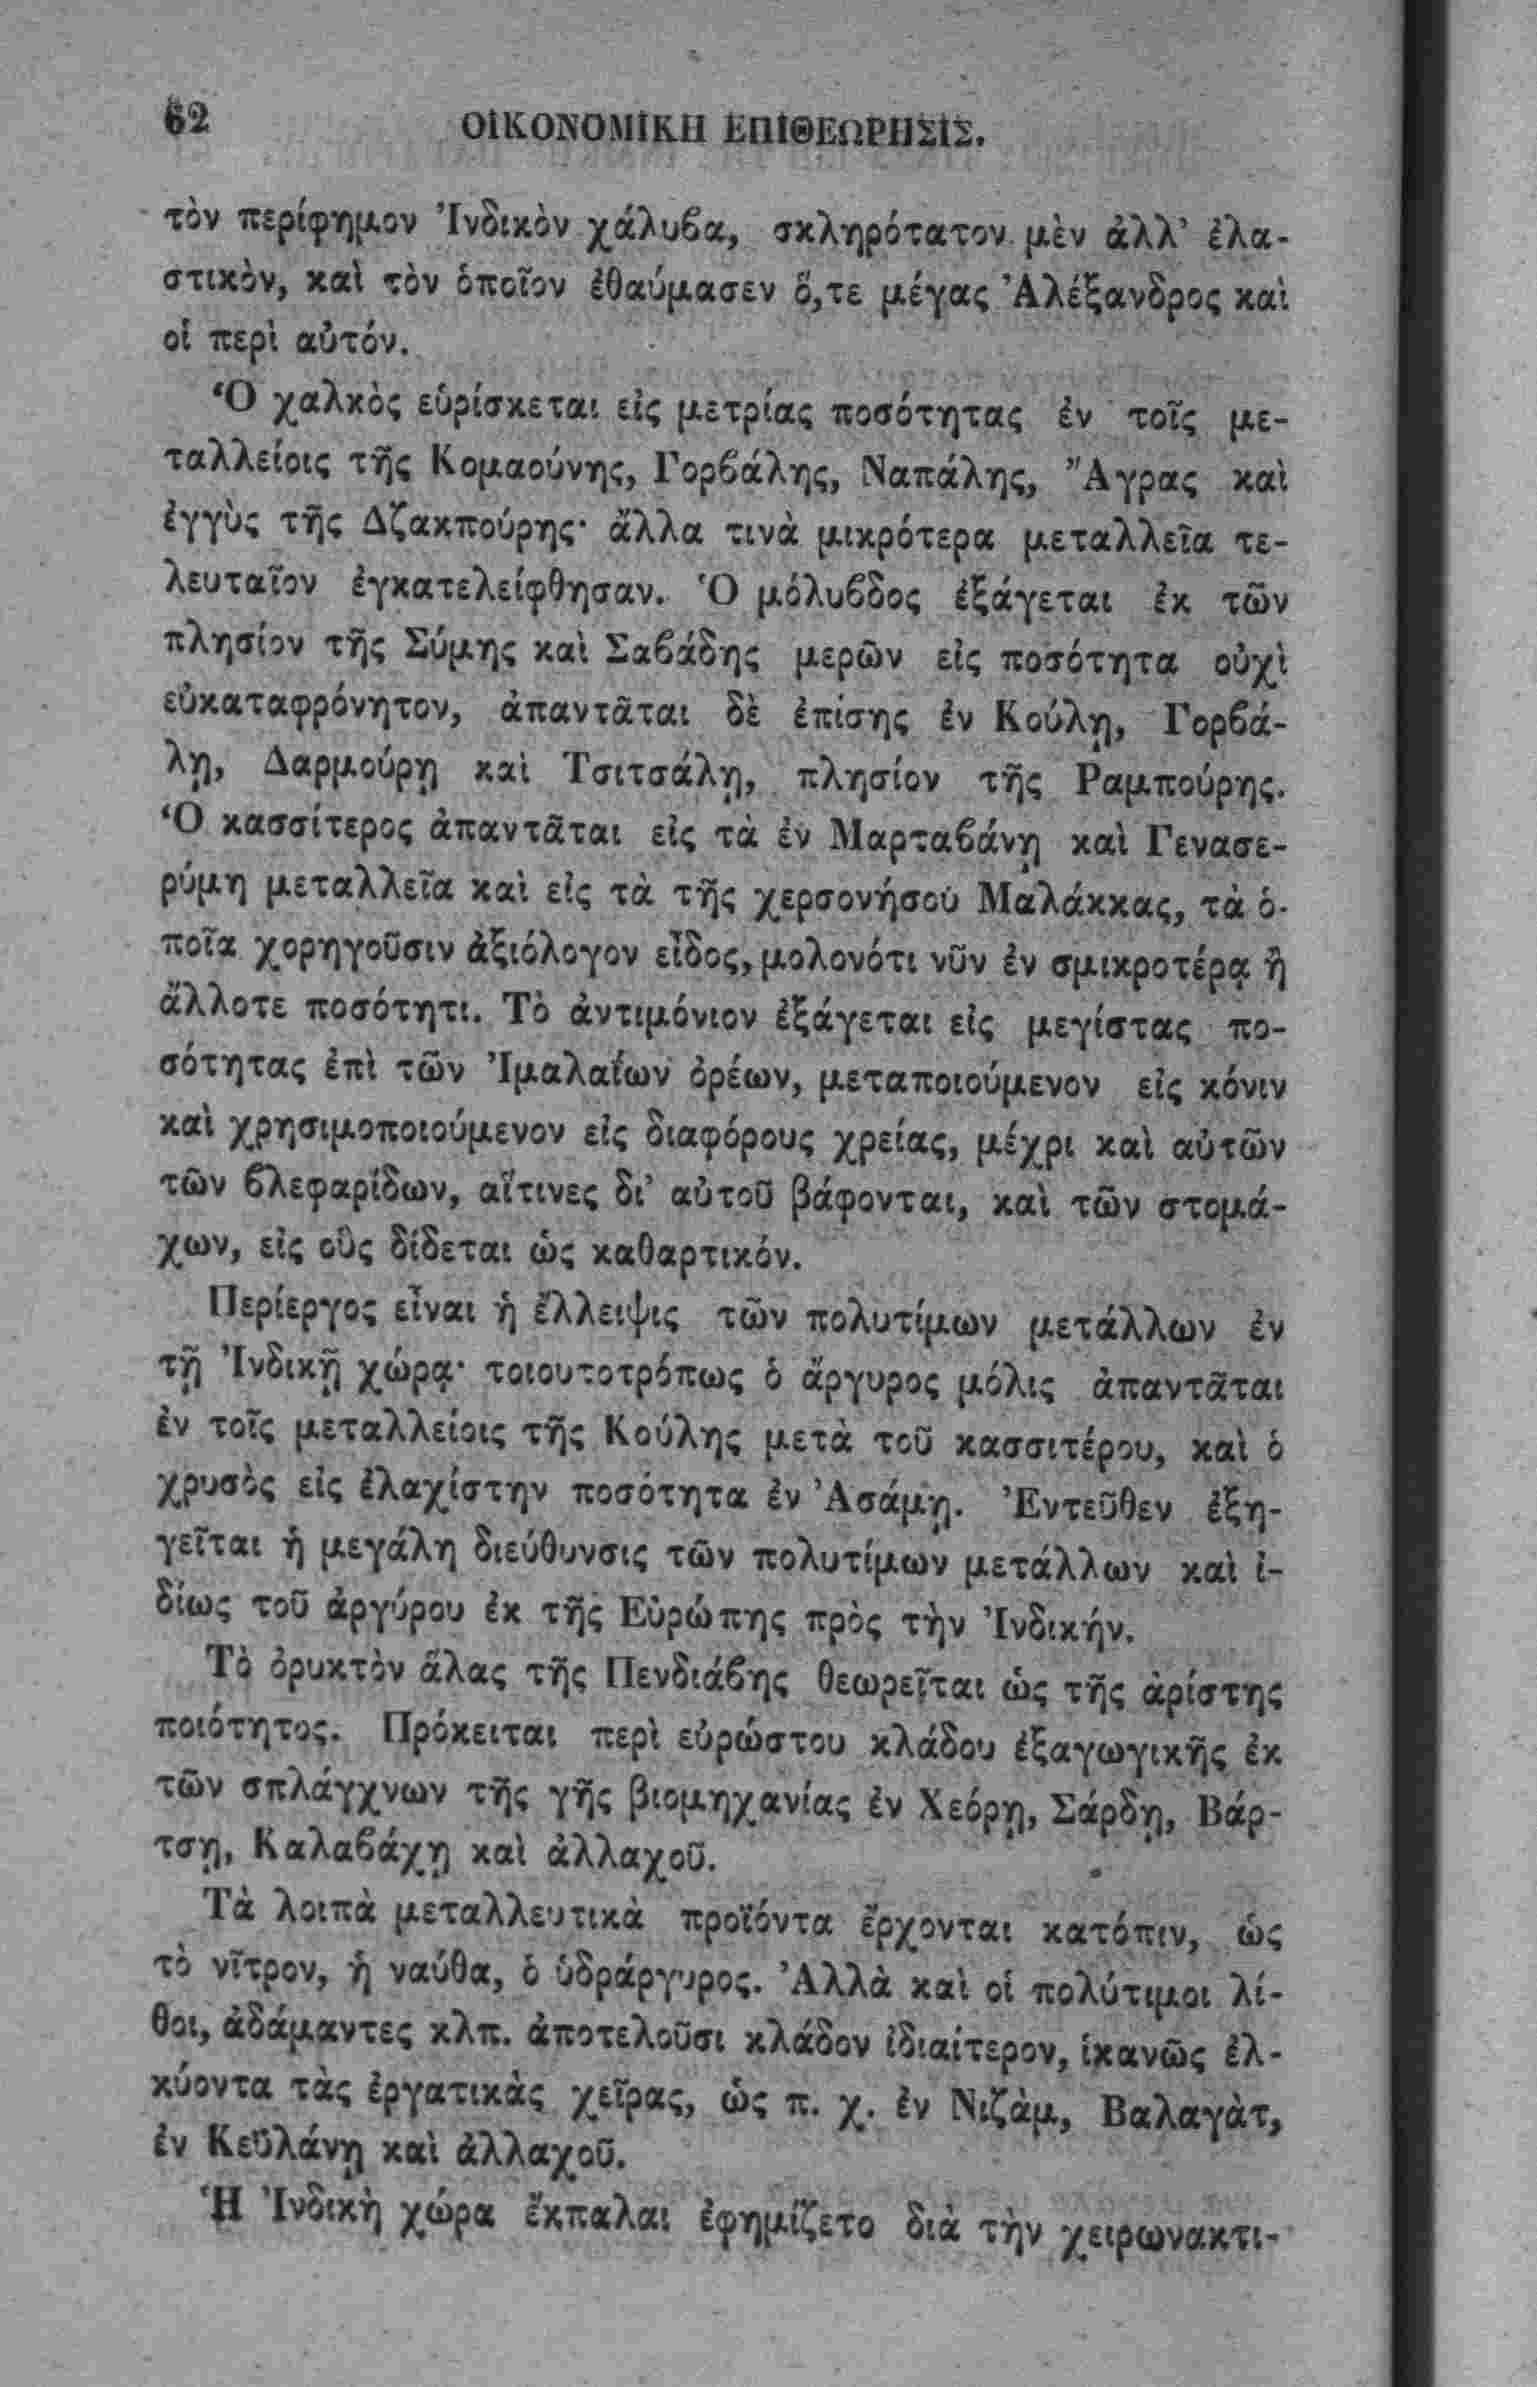 62
ΟΙΚΟΝΟΜΙΚΗ ΕΠΙΘΕΩΡΗΣΙΣ.
τὸν περίφημον Ἰνδικὸν χάλυϐα, σκληρότατον μὲν ἀλλ’ ἐλα-
στικὸν, καὶ τὸν ὁποῖον ἐθαύμασεν ὅ,τε μέγας Ἀλέξανδρος καὶ
οἱ περὶ αὐτόν.
Ὁ χαλκὸς εὑρίσκεται εἰς μετρίας ποσότητας ἐν τοῖς με-
ταλλείοις τῆς Κομαούνης, Γορϐάλης, Ναπάλης, Ἄγρας καὶ
ἐγγὺς τῆς Δζακπούρης· ἄλλα τινὰ μικρότερα μεταλλεῖα τε-
λευταῖον ἐγκατελείφθησαν. Ὁ μόλυϐδος ἐξάγεται ἐκ τῶν
πλησίον τῆς Σύμης καὶ Σαϐάδης μερῶν εἰς ποσότητα οὐχὶ
εὐκαταφρόνητον, ἀπαντᾶται δὲ ἐπίσης ἐν Κούλῃ, Γορϐά-
λῃ, Δαρμούρῃ καὶ Τσιτσάλῃ, πλησίον τῆς Ραμπούρης.
Ὁ κασσίτερος ἀπαντᾶται εἰς τὰ ἐν Μαρταϐάνῃ καὶ Γενασε-
ρύμη μεταλλεῖα καὶ εἰς τὰ τῆς χερσονήσου Μαλάκκας, τὰ ὁ-
ποῖα χορηγοῦσιν ἀξιόλογον εἶδος, μολονότι νῦν ἐν σμικροτέρᾳ ἢ
ἄλλοτε ποσότητι. Τὸ ἀντιμόνιον ἐξάγεται εἰς μεγίστας πο-
σότητας ἐπὶ τῶν Ἱμαλαΐων ὀρέων, μεταποιούμενον εἰς κόνιν
καὶ χρησιμοποιούμενον εἰς διαφόρους χρείας, μέχρι καὶ αὐτῶν
τῶν ϐλεφαρίδων, αἵτινες δι’ αὐτοῦ βάφονται, καὶ τῶν στομά-
χων, εἰς οὓς δίδεται ὡς καθαρτικόν.
Περίεργος εἶναι ἡ ἔλλειψις τῶν πολυτίμων μετάλλων ἐν
τῇ Ἰνδικῇ χώρᾳ· τοιουτοτρόπως ὁ ἄργυρος μόλις ἀπαντᾶται
ἐν τοῖς μεταλλείοις τῆς Κούλης μετὰ τοῦ κασσιτέρου, καὶ ὁ
χρυσὸς εἰς ἐλαχίστην ποσότητα ἐν Ἀσάμῃ. Ἐντεῦθεν ἐξη-
γεῖται ἡ μεγάλη διεύθυνσις τῶν πολυτίμων μετάλλων καὶ ἰ-
δίως τοῦ ἀργύρου ἐκ τῆς Εὐρώπης πρὸς τὴν Ἰνδικήν.
Τὸ ὀρυκτὸν ἅλας τῆς Πενδιάϐης θεωρεῖται ὡς τῆς ἀρίστης
ποιότητος. Πρόκειται περὶ εὐρώστου κλάδου ἐξαγωγικῆς ἐκ
τῶν σπλάγχνων τῆς γῆς βιομηχανίας ἐν Χεόρῃ, Σάρδῃ, Βάρ-
τσῃ, Καλαϐάχῃ καὶ ἀλλαχοῦ.
Τὰ λοιπὰ μεταλλευτικὰ προϊόντα ἔρχονται κατόπιν, ὡς
τὸ νῖτρον, ἡ ναύθα, ὁ ὑδράργυρος. Ἀλλὰ καὶ οἱ πολύτιμοι λί-
θοι, ἀδάμαντες κλπ. ἀποτελοῦσι κλάδον ἰδιαίτερον, ἱκανῶς ἑλ-
κύοντα τὰς ἐργατικὰς χεῖρας, ὡς π. χ. ἐν Νιζὰμ, Βαλαγὰτ,
ἐν Κεϋλάνῃ καὶ ἀλλαχοῦ.
Ἡ Ἰνδικὴ χώρα ἔκπαλαι ἐφημίζετο διὰ τὴν χειρωνακτι-